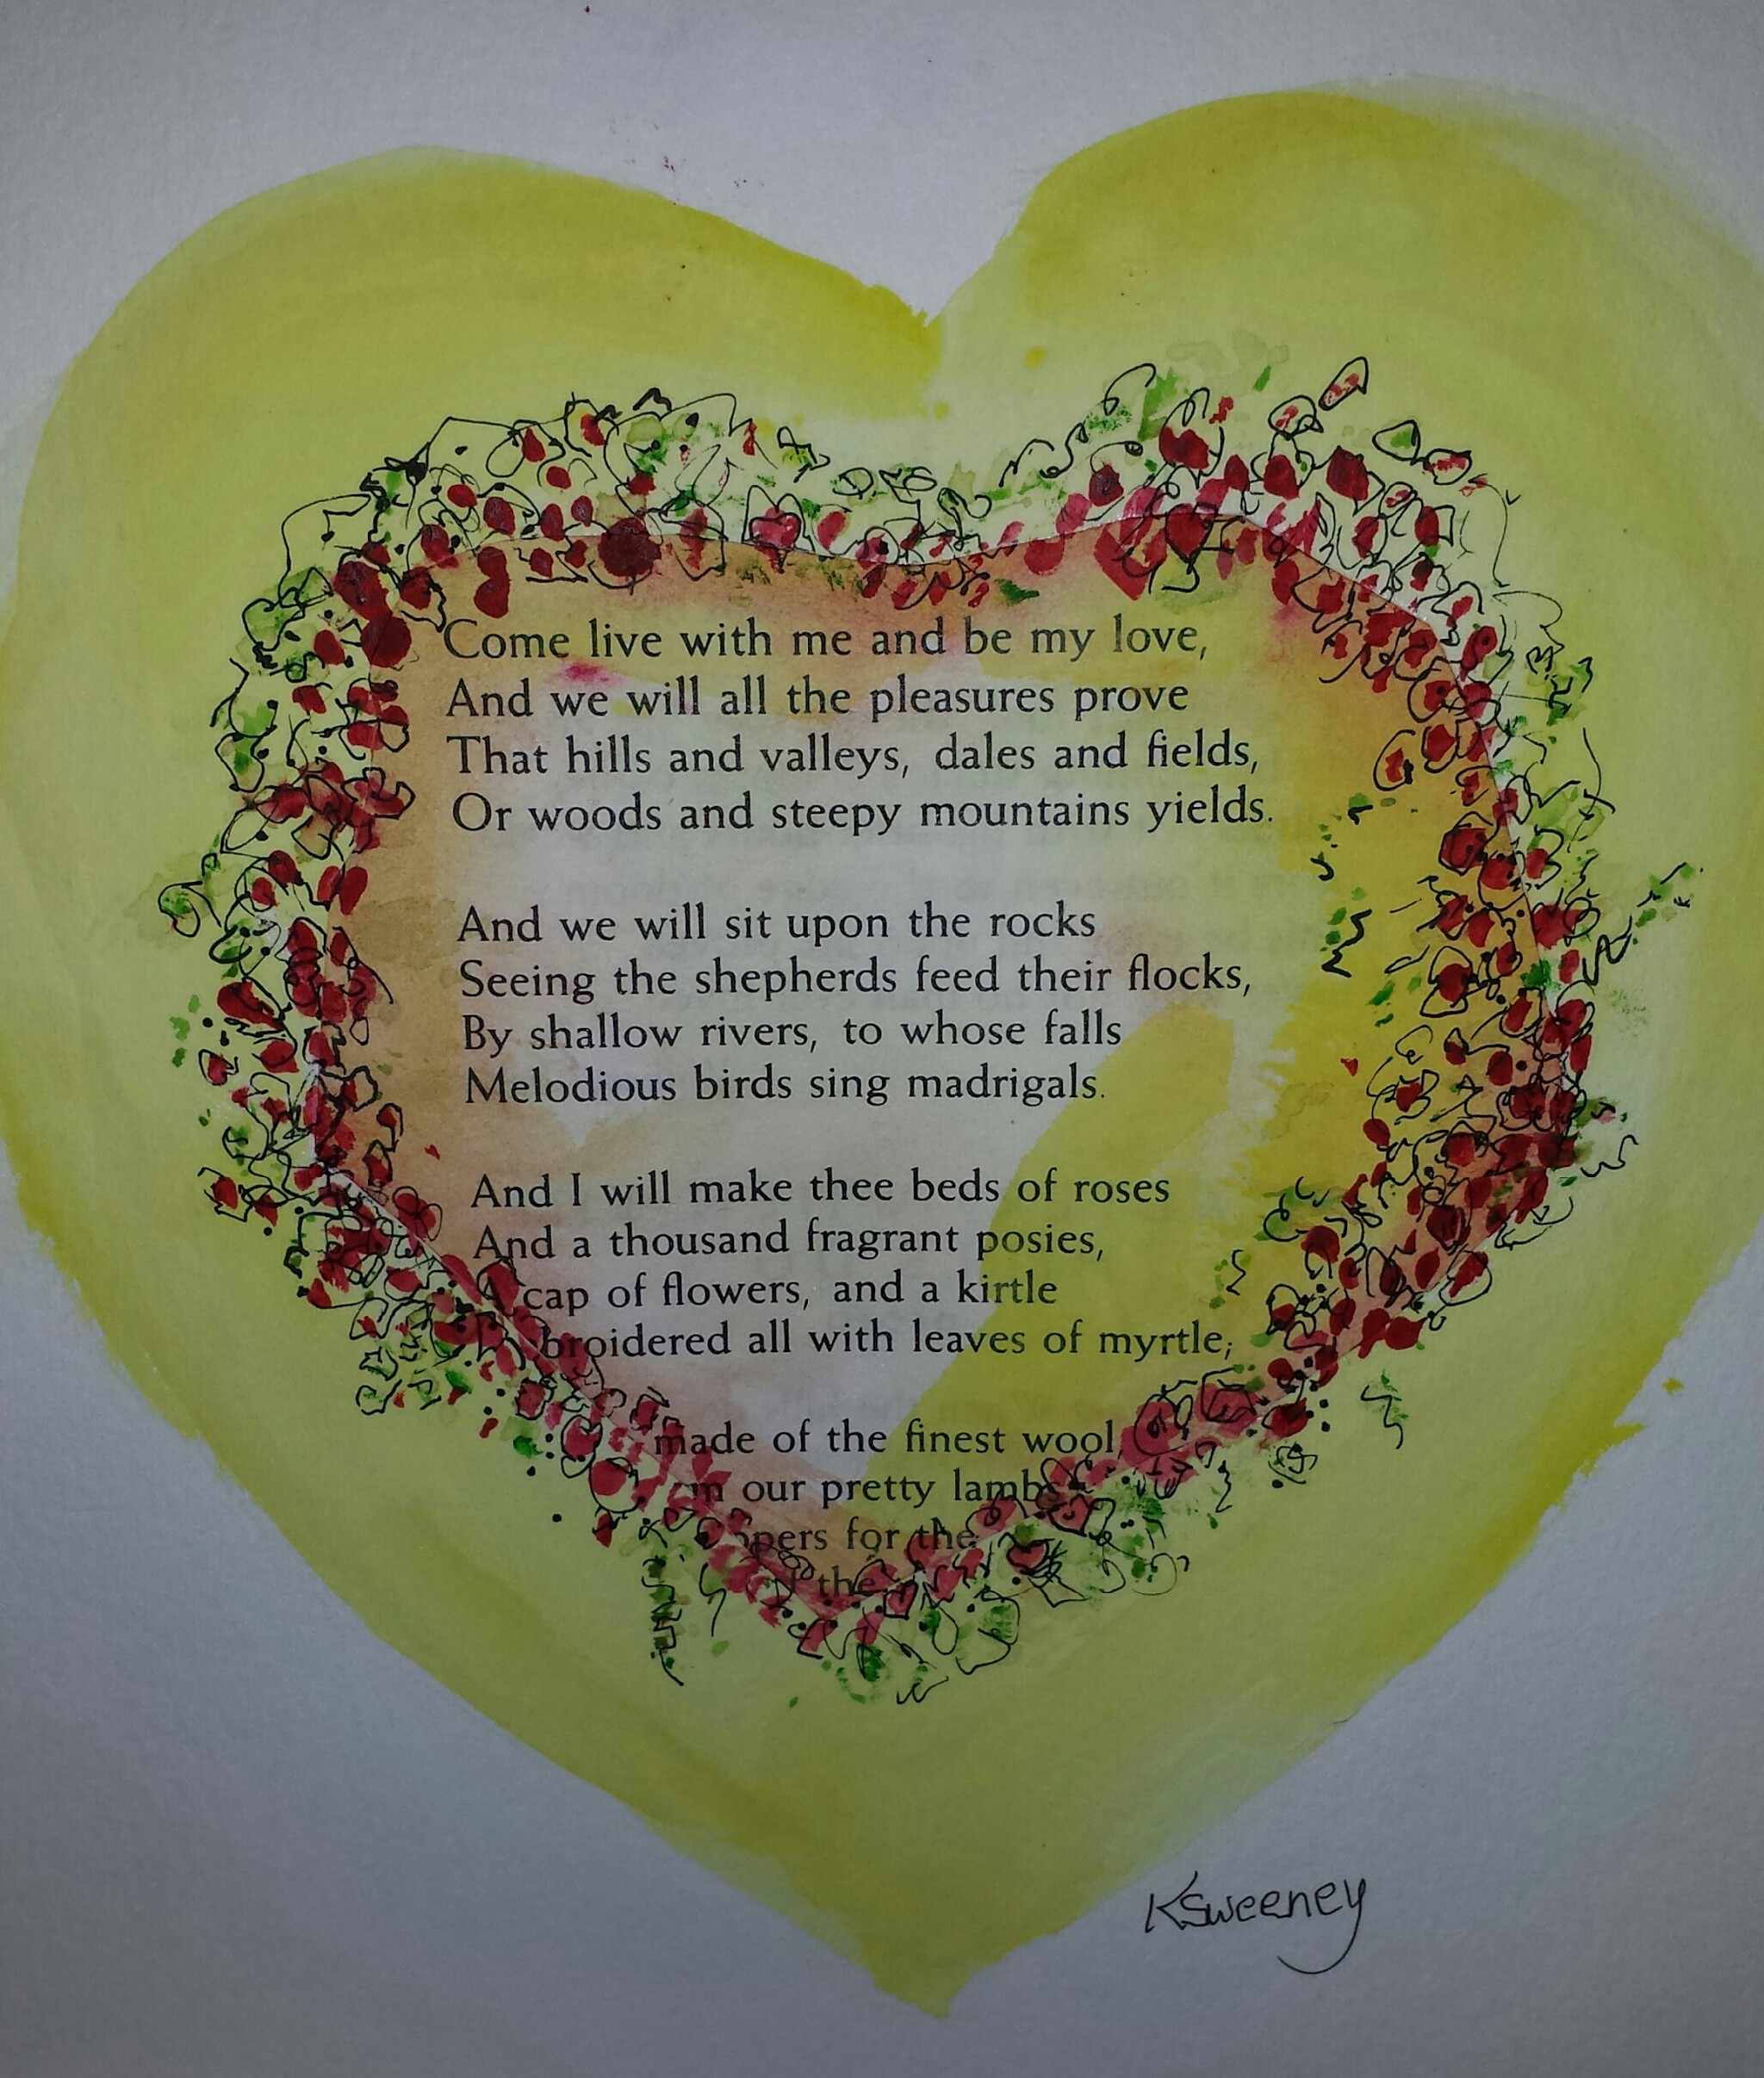 Come live with me and be my love,
And we will all the pleasures prove
That hills and valleys, dales and fields,
Or woods and steepy mountains yields.
And we will sit upon the rocks
Seeing the shepherds feed their flocks,
By shallow rivers, to whose falls
Melodious birds sing madrigals.
And I will make thee beds of roses
And a thousand fragrant posies,
A cap of flowers, and a kirtle
broidered all with leaves of myrtle;
made of the finest wool,
our pretty lambs
for the
the
KSweeney